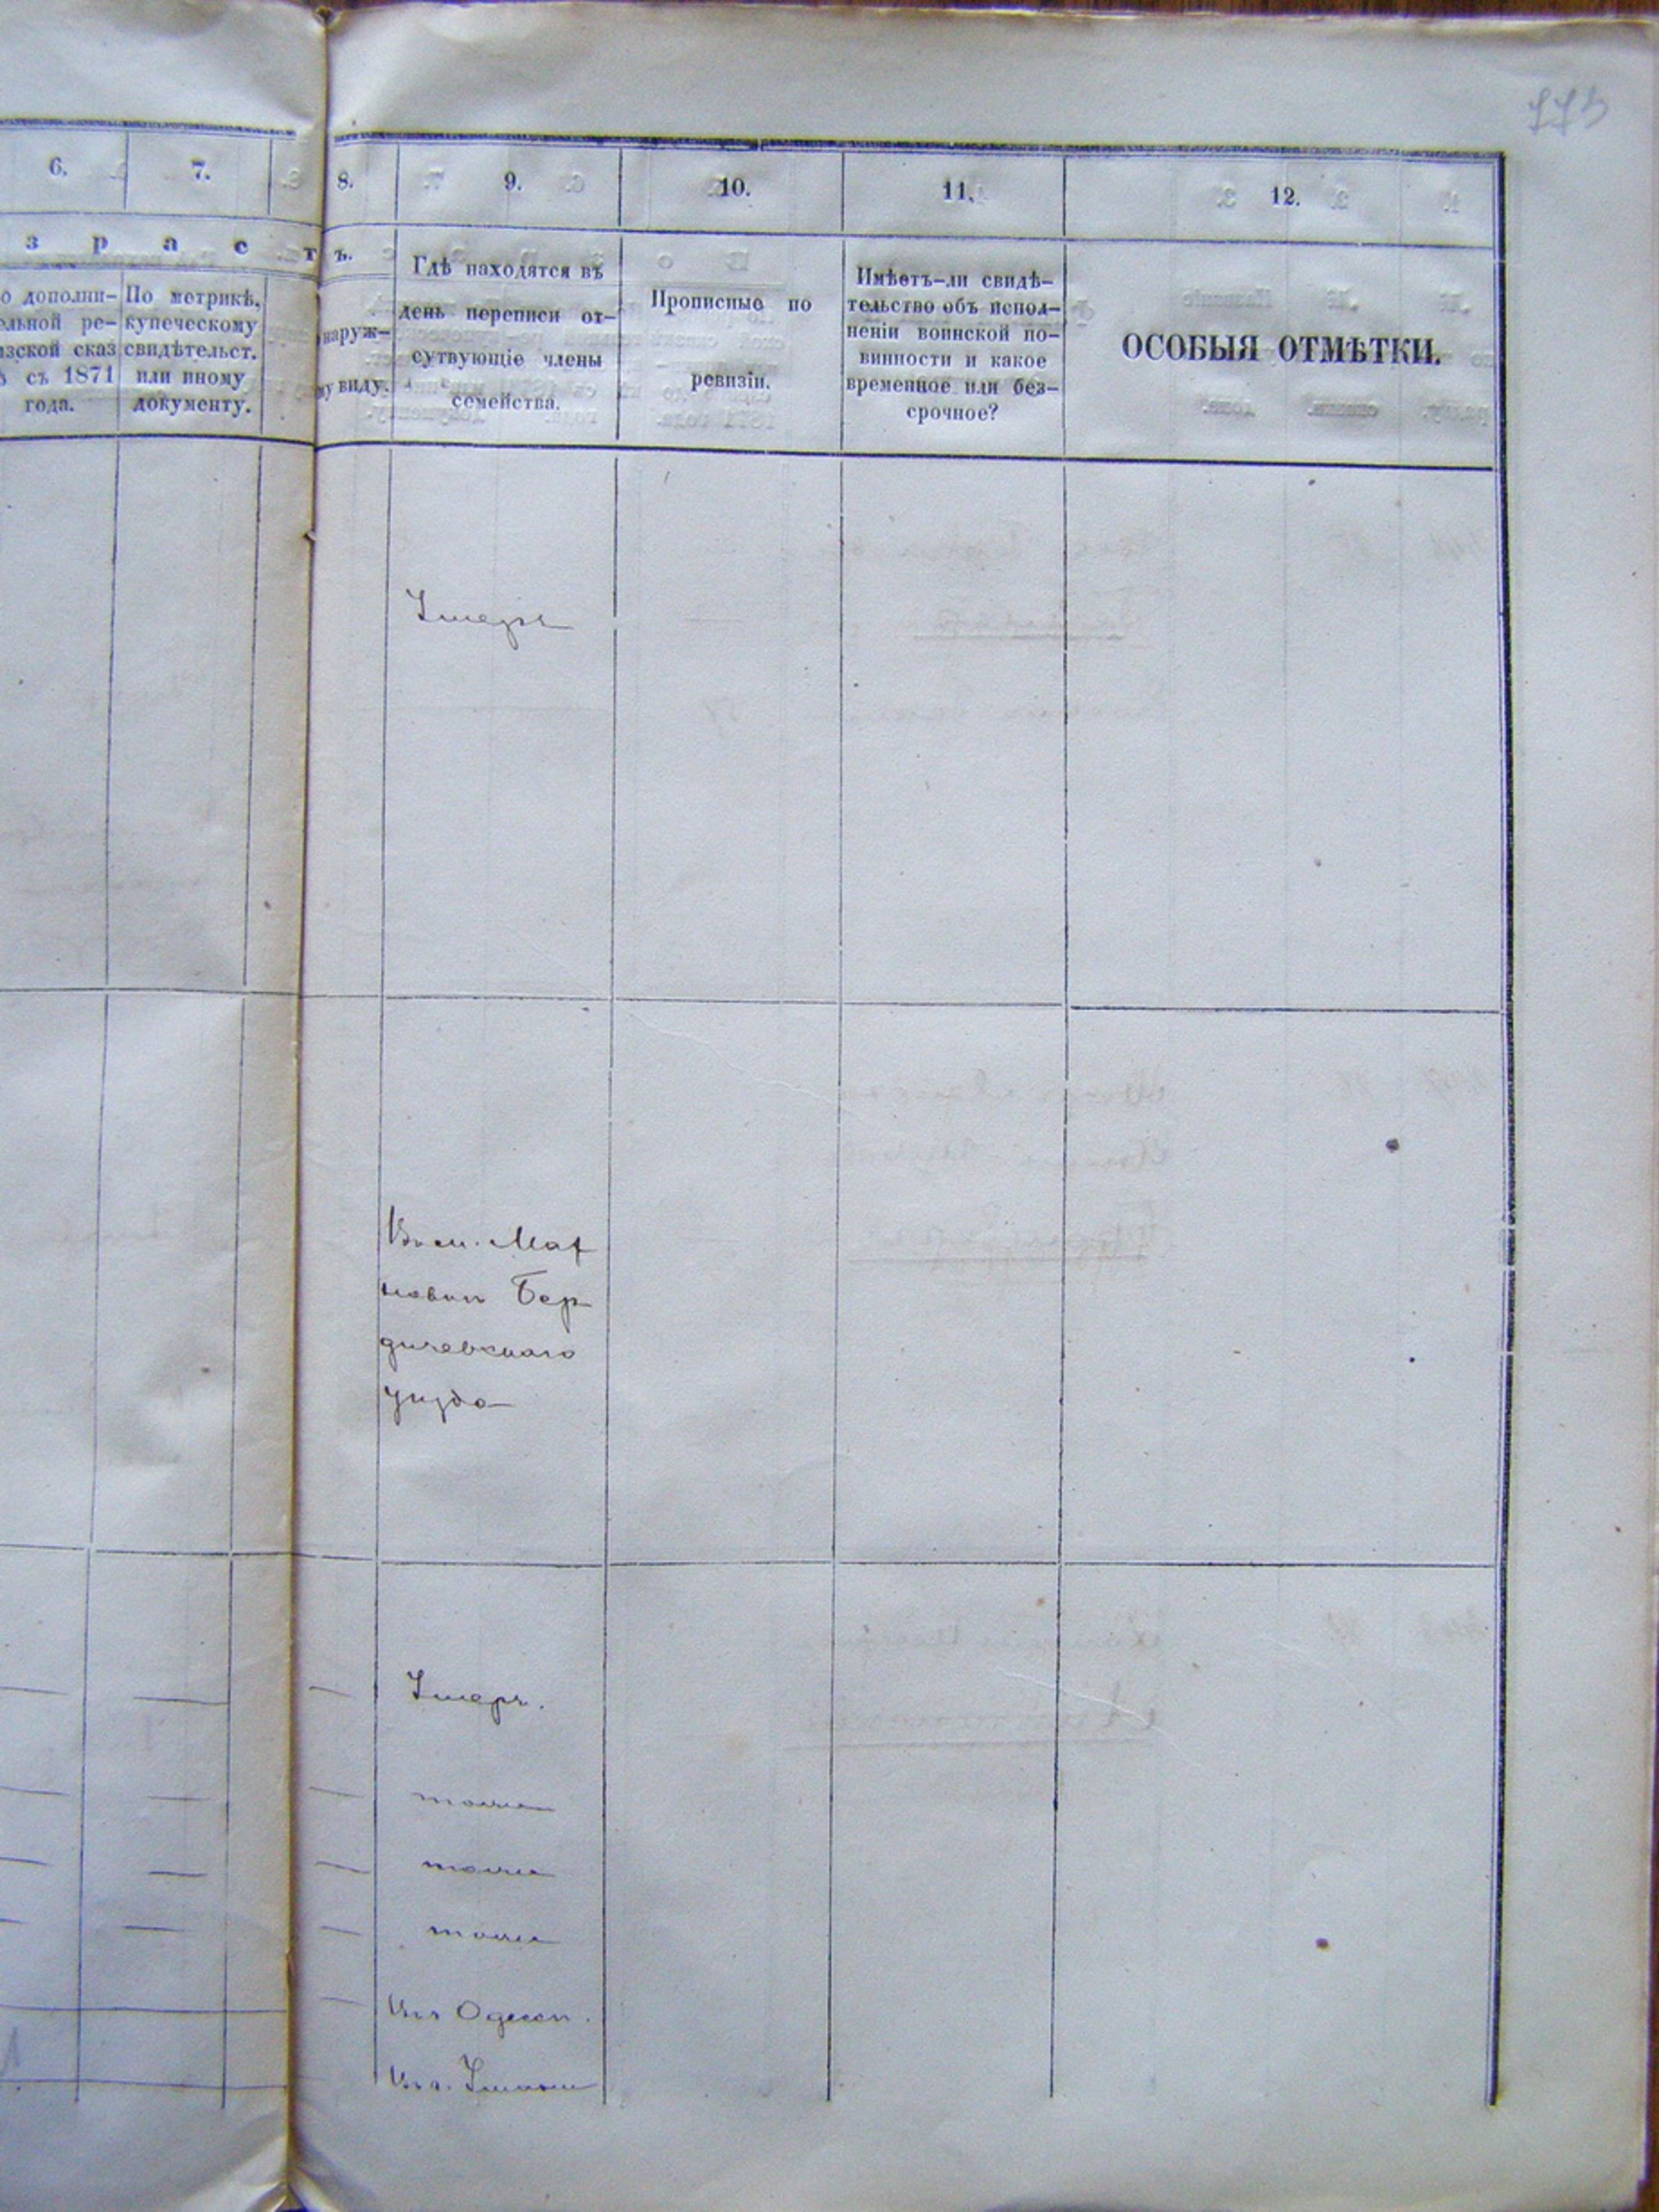 6. 7. 8. 9. 10. 11. 12.
з р а с т ъ.
о дополни-
ельной ре-
изской сказ
ѣ съ 1871
года.
По метрикѣ,
купеческому
свидѣтельст.
или иному
документу.
наруж-
му виду.
Гдѣ находятся въ
день переписи от-
сутвующіе члены
семейства.
Прописные по
ревизіи.
Имѣетъ-ли свидѣ-
тельство объ испол-
неніи воинской по-
винности и какое
временное или без-
срочное?
ОСОБЫЯ ОТМѢТКИ.
Умеръ
Бер
дичевскаго
уѣзда
Умеръ.
тоже
тоже
тоже
Въ г. Одессѣ.
Въ г.